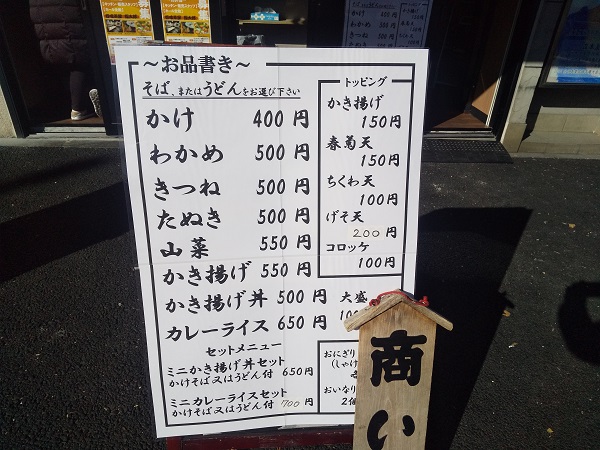 ～お品書き～
そば、またはうどんをお選び下さい
かけ 400円
わかめ 500円
きつね 500円
たぬき 500円
山菜 550円
かき揚げ 550円
かき揚げ丼 500円 大盛
カレーライス 650円 10
セットメニュー
ミニかき揚げ丼セット
かけそば又はうどん付 650円
ミニカレーライスセット
かけそば又はうどん付 700円
トッピング
かき揚げ
150円
春菊天
150円
ちくわ天
100円
げそ天
200円
コロッケ
100円
おにぎり
(しゃけ
おいなり
2個
商い